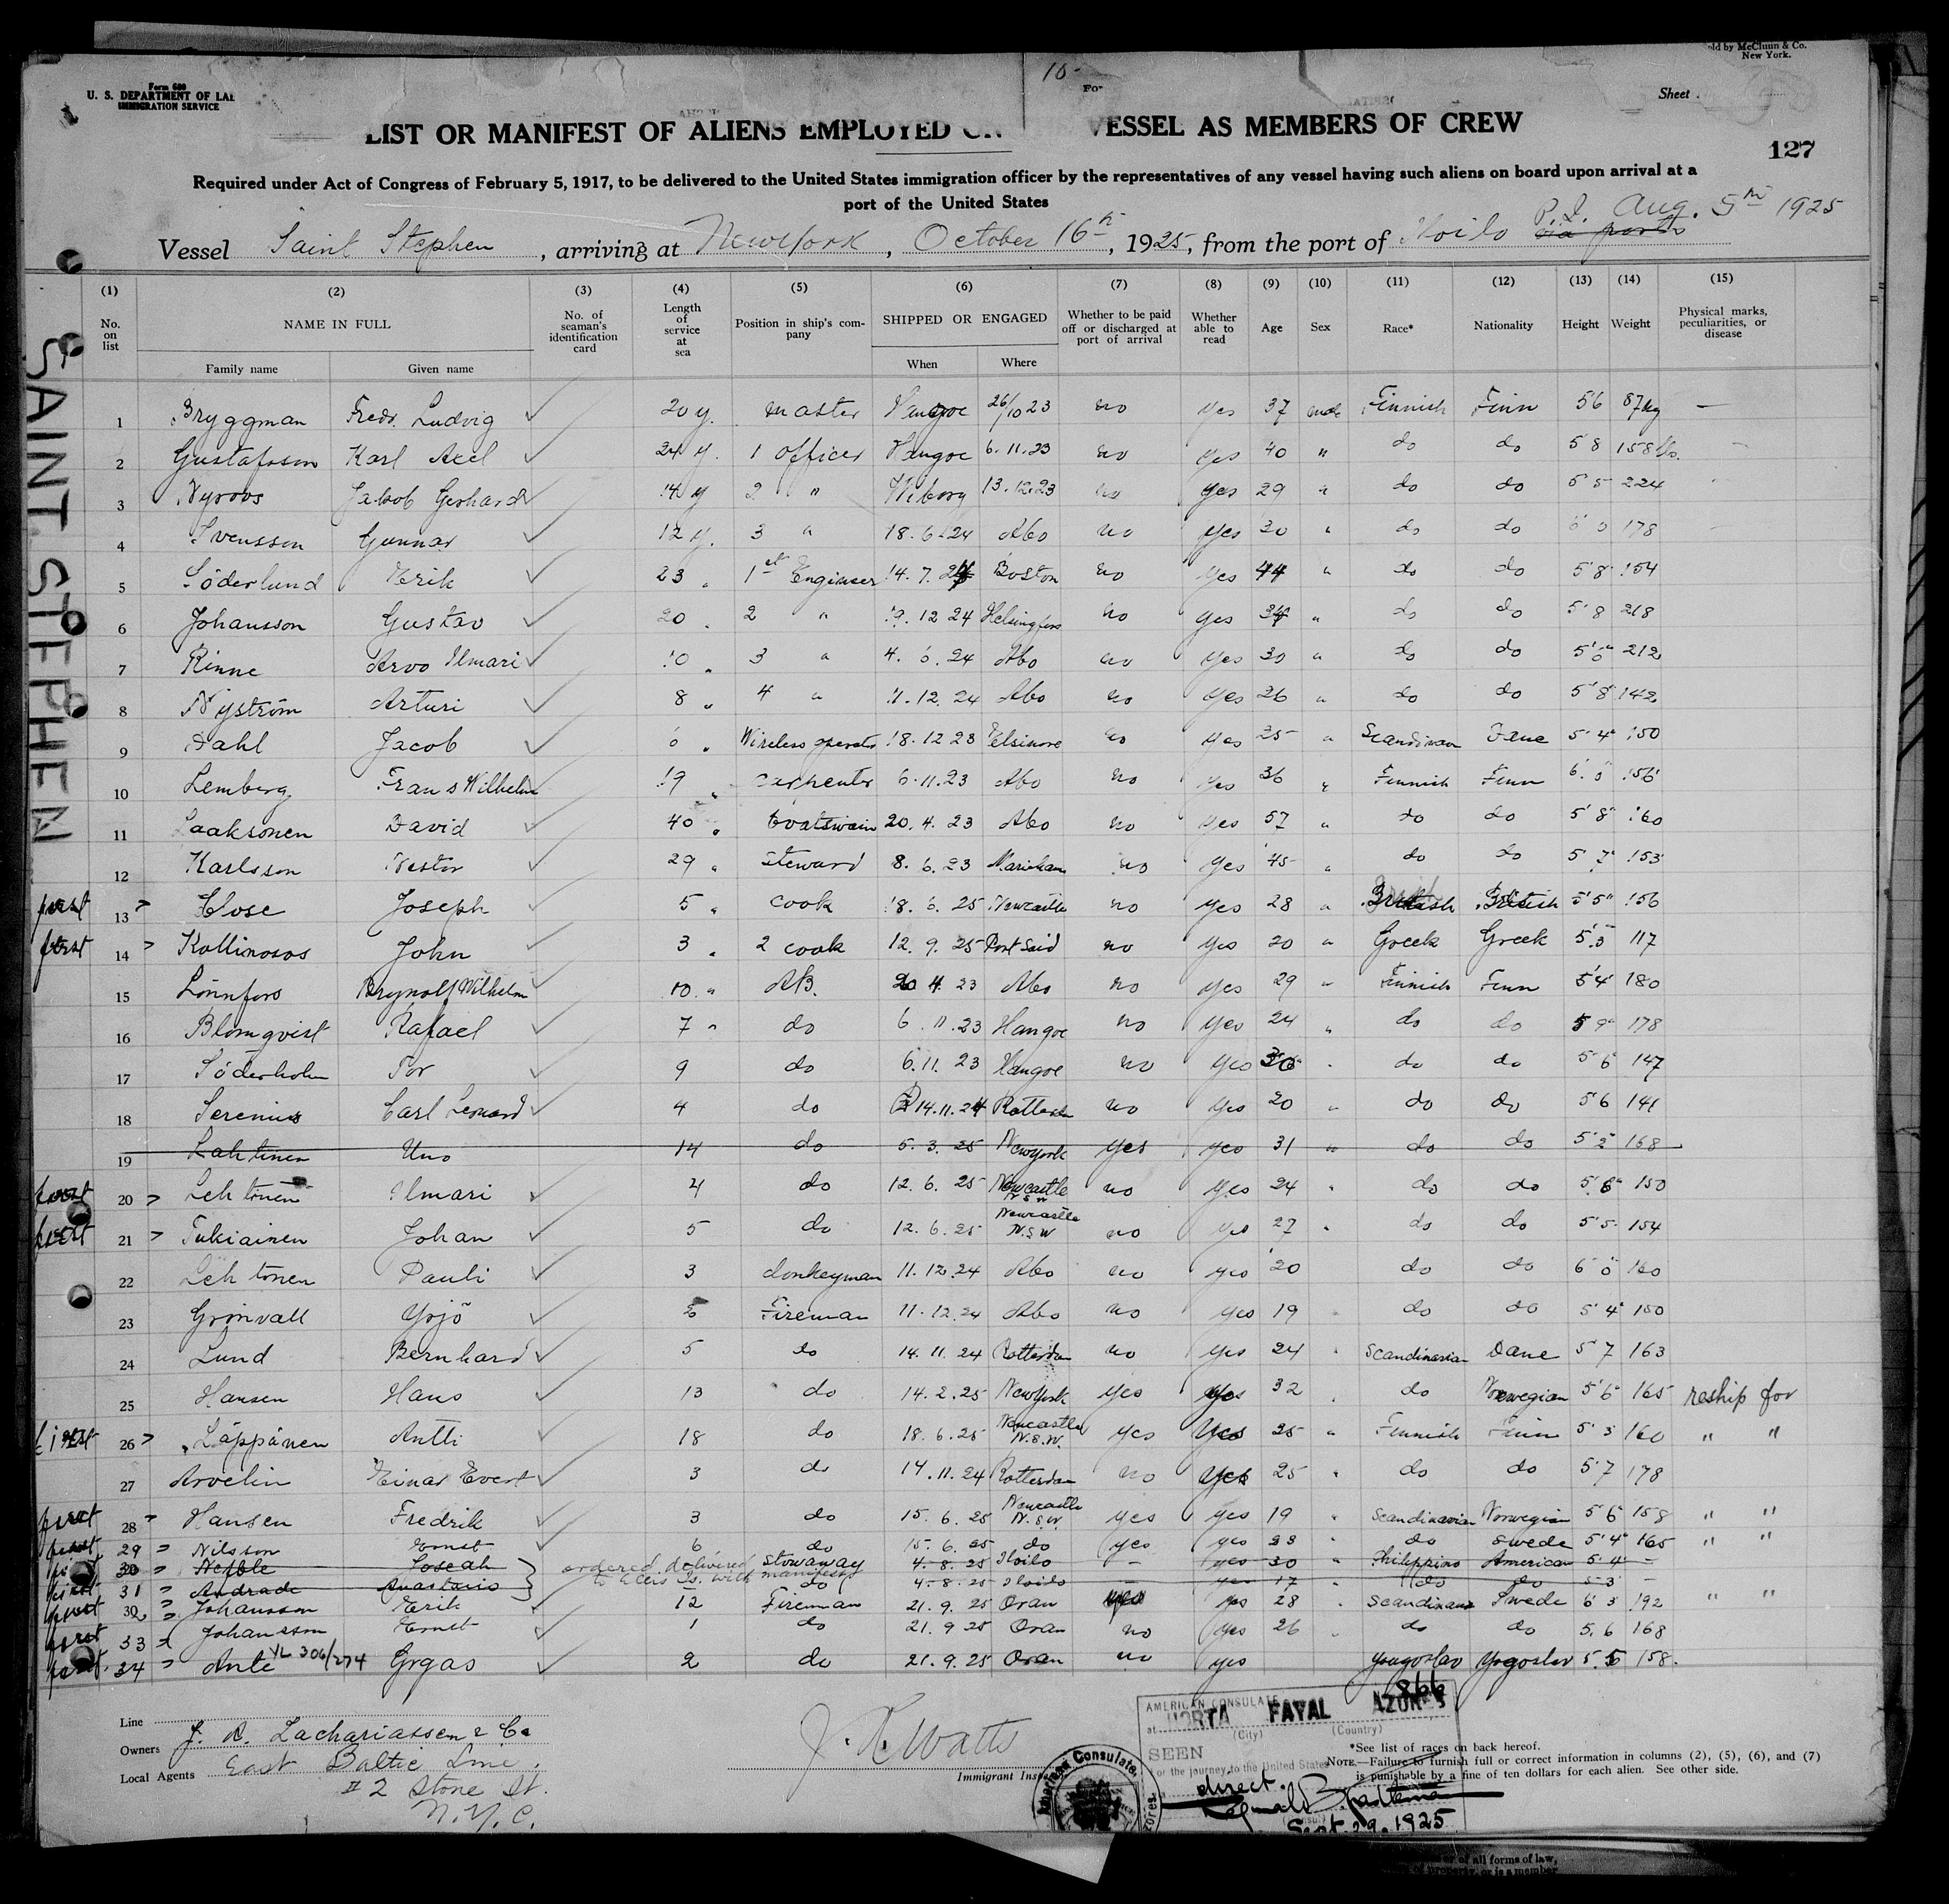 10-
ld by McClunn & Co.
New York.
Form 689
U. S. DEPARTMENT OF LAB
IMMIGRATION SERVICE
For
Sheet
LIST OR MANIFEST OF ALIENS EMPLOYED ON VESSEL AS MEMBERS OF CREW
127
Required under Act of Congress of February 5, 1917, to be delivered to the United States immigration officer by the representatives of any vessel having such aliens on board upon arrival at a
port of the United States
P.I. Aug. 5th 1925
Vessel Saint Stephen, arriving at New York, October 16th, 1925, from the port of Iloilo via ports
SAINT STEPHEN
(1) (2) (3) (4) (5) (6) (7) (8) (9) (10) (11) (12) (13) (14) (15)
No. on list NAME IN FULL No. of seaman's identification card Length of service at sea Position in ship's company SHIPPED OR ENGAGED Whether to be paid off or discharged at port of arrival Whether able to read Age Sex Race* Nationality Height Weight Physical marks, peculiarities, or disease
Family name Given name When Where
1 Bryggman Fredr. Ludvig 20 y. master Hangoe 26/10 23 no yes 37 male Finnish Finn 56 87kg —
2 Gustafsson Karl Axel 24 y. 1 officer Hangoe 6.11.23 no yes 40 " do do 5 8 158 lbs.
3 Nyroos Jakob Gerhard 14 y 2 " Wiborg 13.12.23 no yes 29 " do do 5 5 224
4 Svensson Gunnar 12 y. 3 " 18.6.24 Abo no yes 30 " do do 6 0 178
5 Söderlund Erik 23 " 1st Engineer 14.7.24 Boston no yes 44 " do do 5'8 154
6 Johansson Gustav 20 2 " 19.12 24 Helsingfors no yes 34 " do do 5'8 218
7 Rinne Arvo Ilmari 10 " 3 " 4.6.24 Abo no yes 30 " do do 5'6" 212
8 Nyström Arturi 8 " 4 " 11.12.24 Abo no yes 26 " do do 5'8 142
9 Dahl Jacob 6 " Wireless operator 18.12 23 Elsinore no yes 25 " Scandinavian Dane 5'4" 150
10 Lemberg Frans Wilhelm 19 " carpenter 6.11.23 Abo no yes 36 " Finnish Finn 6'0 156
11 Laaksonen David 40 " boatswain 20.4.23 Abo no yes 57 " do do 5'8 160
12 Karlsson Nestor 29 " steward 8.6.23 Marieham no yes 45 " do do 5'7" 153
first 13 > Klose Joseph 5 " cook 18.6.25 Newcastle no yes 28 " British British 5'5" 156
first 14 > Kollinosos John 3 " 2 cook 12.9.25 Port Said no yes 20 " Greek Greek 5'5 117
15 Lönnfors Brynolf Wilhelm 10 " AB. 20 4 23 Abo no yes 29 " Finnish Finn 5'4 180
16 Blomqvist Rafael 7 " do 6.11.23 Hangoe no yes 24 " do do 5 9" 178
17 Söderholm Tor 9 do 6.11.23 Hangoe no yes 36 do do 5'6 147
18 Serenius Carl Leonard 4 do 14.11.24 Rotterdam no yes 20 " do do 5'6 141
19 Lahtinen Uno 14 do 5.3.25 New York yes yes 31 " do do 5'2" 168
first 20 > Lehtonen Ilmari 4 do 12.6.25 Newcastle N S W no yes 24 " do do 5'6" 150
first 21 > Tukiainen Johan 5 do 12.6.25 Newcastle N.S W no yes 27 " do do 5'5 154
22 Lehtonen Pauli 3 donkeyman 11.12.24 Abo no yes 20 do do 6'0 160
23 Grönvall Yrjö Fireman 11.12.24 Abo no yes 19 do do 5'4" 150
24 Lund Bernhard 5 do 14.11.24 Rotterdam no yes 24 " Scandinavian Dane 5'7 163
25 Hansen Hans 13 do 14.2.25 New York yes yes 32 do Norwegian 5'6" 165 reship for
first 26 > Läppänen Antti 18 do 18.6.25 Newcastle N.S.W. yes yes 25 " Finnish Finn 5'3 160 " "
27 Arvelin Einar Evert 3 do 14.11.24 Rotterdam no yes 25 " do do 5'7 178
first 28 > Hansen Fredrik 3 do 15.6.25 Newcastle N.S.W. yes yes 19 " Scandinavian Norwegian 5'6 158 " "
first 29 > Nilsson Ernst 6 do 15.6.25 do yes yes 23 " do Swede 5'4" 165 " "
30 " Joseah ordered delivered stowaway 4.8.25 Iloilo — yes 30 " Philippino American 5'4 —
31 " Andrade Anastasio with manifest do 4.8.25 Iloilo — yes 17 " do do 5'3 —
first 32 > Johansson Erik 12 Fireman 21.9.25 Oran yes yes 28 " Scandinavian Swede 6'3 192 " "
first 33 > Johansson Ernst 1 do 21.9 25 Oran no yes 26 " do do 5.6 168
first 34 > Ante YL 306/274 Grgas 2 do 21.9.25 Oran no yes Yougoslav Yogoslav 5.5 158.
866
Line
Owners J. A. Zachariassen & Co
Local Agents East Baltic Line.
# 2 Stone St.
N.Y.C.
J. K. Watts
Immigrant Ins
AMERICAN CONSULATE
at HORTA FAYAL AZORES
(City) (Country)
SEEN
For the journey to the United States
direct.
Sept. 29. 1925
American Consulate.
*See list of races on back hereof.
NOTE—Failure to furnish full or correct information in columns (2), (5), (6), and (7)
is punishable by a fine of ten dollars for each alien. See other side.
of all forms of law,
of property, or is a member